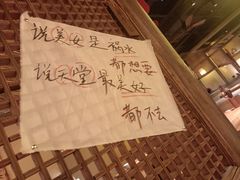 说美女是祸水
都想要
说天堂最美好
都不去